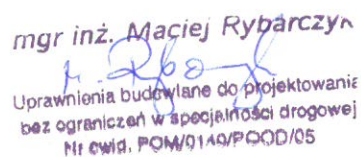 mgr inż. Maciej Rybarczyk
Uprawnienia budowlane do projektowania
bez ograniczeń w specjalności drogowej
Nr ewid. POM/0140/POOD/05